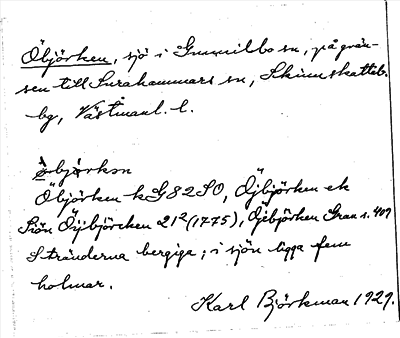 Öbjörken, sjö i Gunnilbo sn, på grän-
sen till Surahammars sn, Skinnskatteb.
bg, Västmanl. l.
Öbjörken kG82SO, Öjbjörken ek
Siön Öijbjörcken 21² (1775), Öjebjörken Gran s. 409
Stränderna bergiga; i sjön ligga fem
holmar.
Karl Björkman 1929.